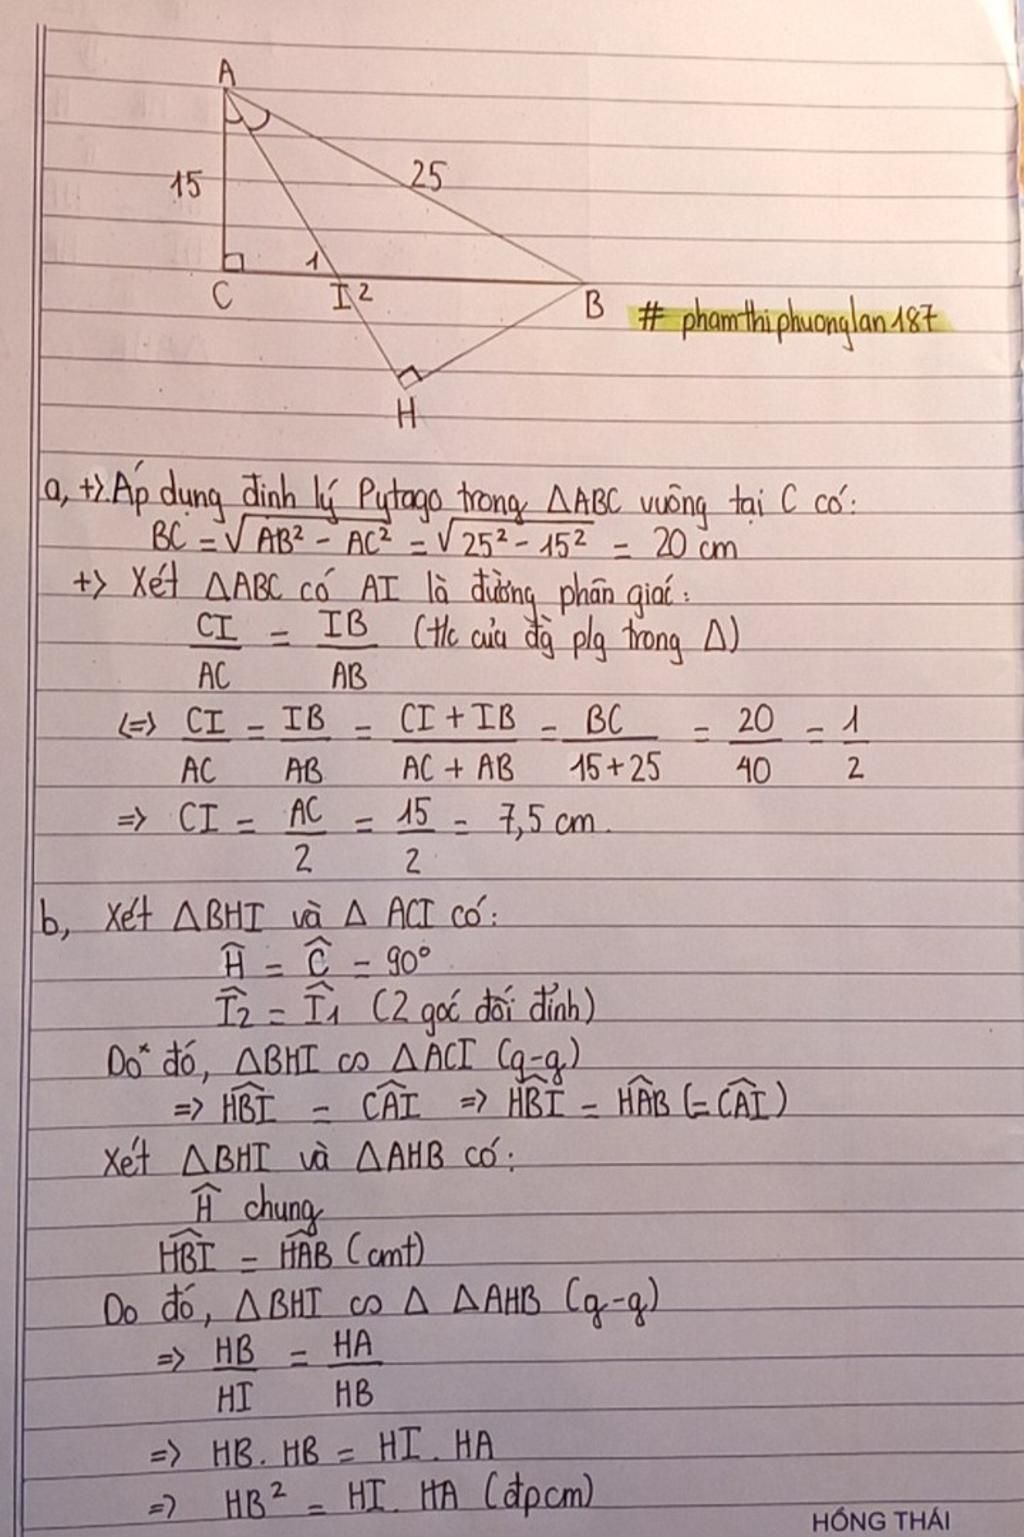 A
15
25
1
C
I 2
B
# phamthiphuonglan187
H
a, +>. Áp dụng định lý Pytago trong ΔABC vuông tại C có:
BC = √AB² - AC² = √25² - 15² = 20 cm
+> Xét ΔABC có AI là đường phân giác:
CI/AC = IB/AB (t/c của đg p/g trong Δ)
<=> CI/AC = IB/AB = CI + IB/AC + AB = BC/15 + 25 = 20/40 = 1/2
=> CI = AC/2 = 15/2 = 7,5 cm.
b, Xét ΔBHI và Δ ACI có:
Ĥ = Ĉ = 90°
Î2 = Î1 (2 góc đối đỉnh)
Do* đó, ΔBHI ∽ ΔACI (g-g)
=> HBI = CAI => HBI = HAB (= CAI)
Xét ΔBHI và ΔAHB có:
Ĥ chung
HBI = HAB (cmt)
Do đó, ΔBHI ∽ Δ ΔAHB (g-g)
=> HB/HI = HA/HB
=> HB. HB = HI. HA
=> HB² = HI. HA (đpcm)
HỒNG THÁI